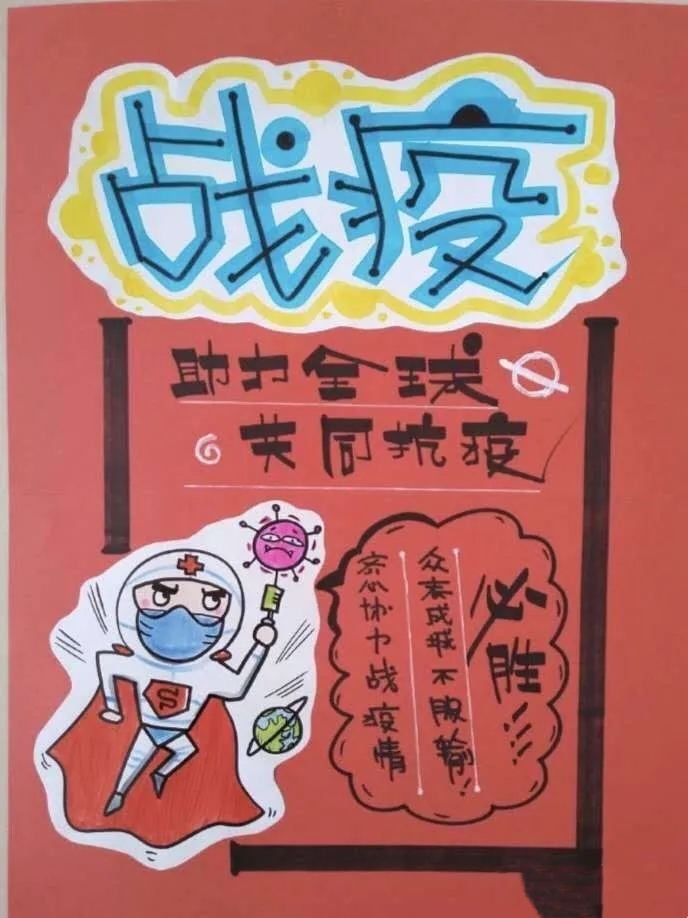 战疫
助力全球
共同抗疫
必胜!!!
众志成城不服输!
齐心协力战疫情